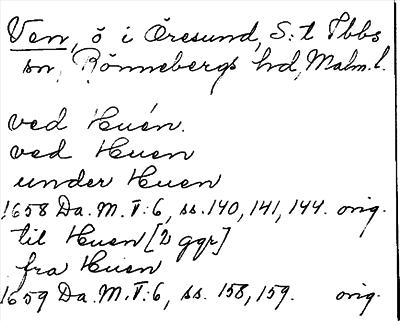 Ven, ö i Öresund, S:t Ibbs
sn, Rönnebergs hd, Malm. l.
ved Huén.
ved Huen
under Huen
1658 Da. M. T:6, ss. 140, 141, 144. orig.
til Huen [2 ggr]
fra Huen
1659 Da. M. T:6, ss. 158, 159. orig.